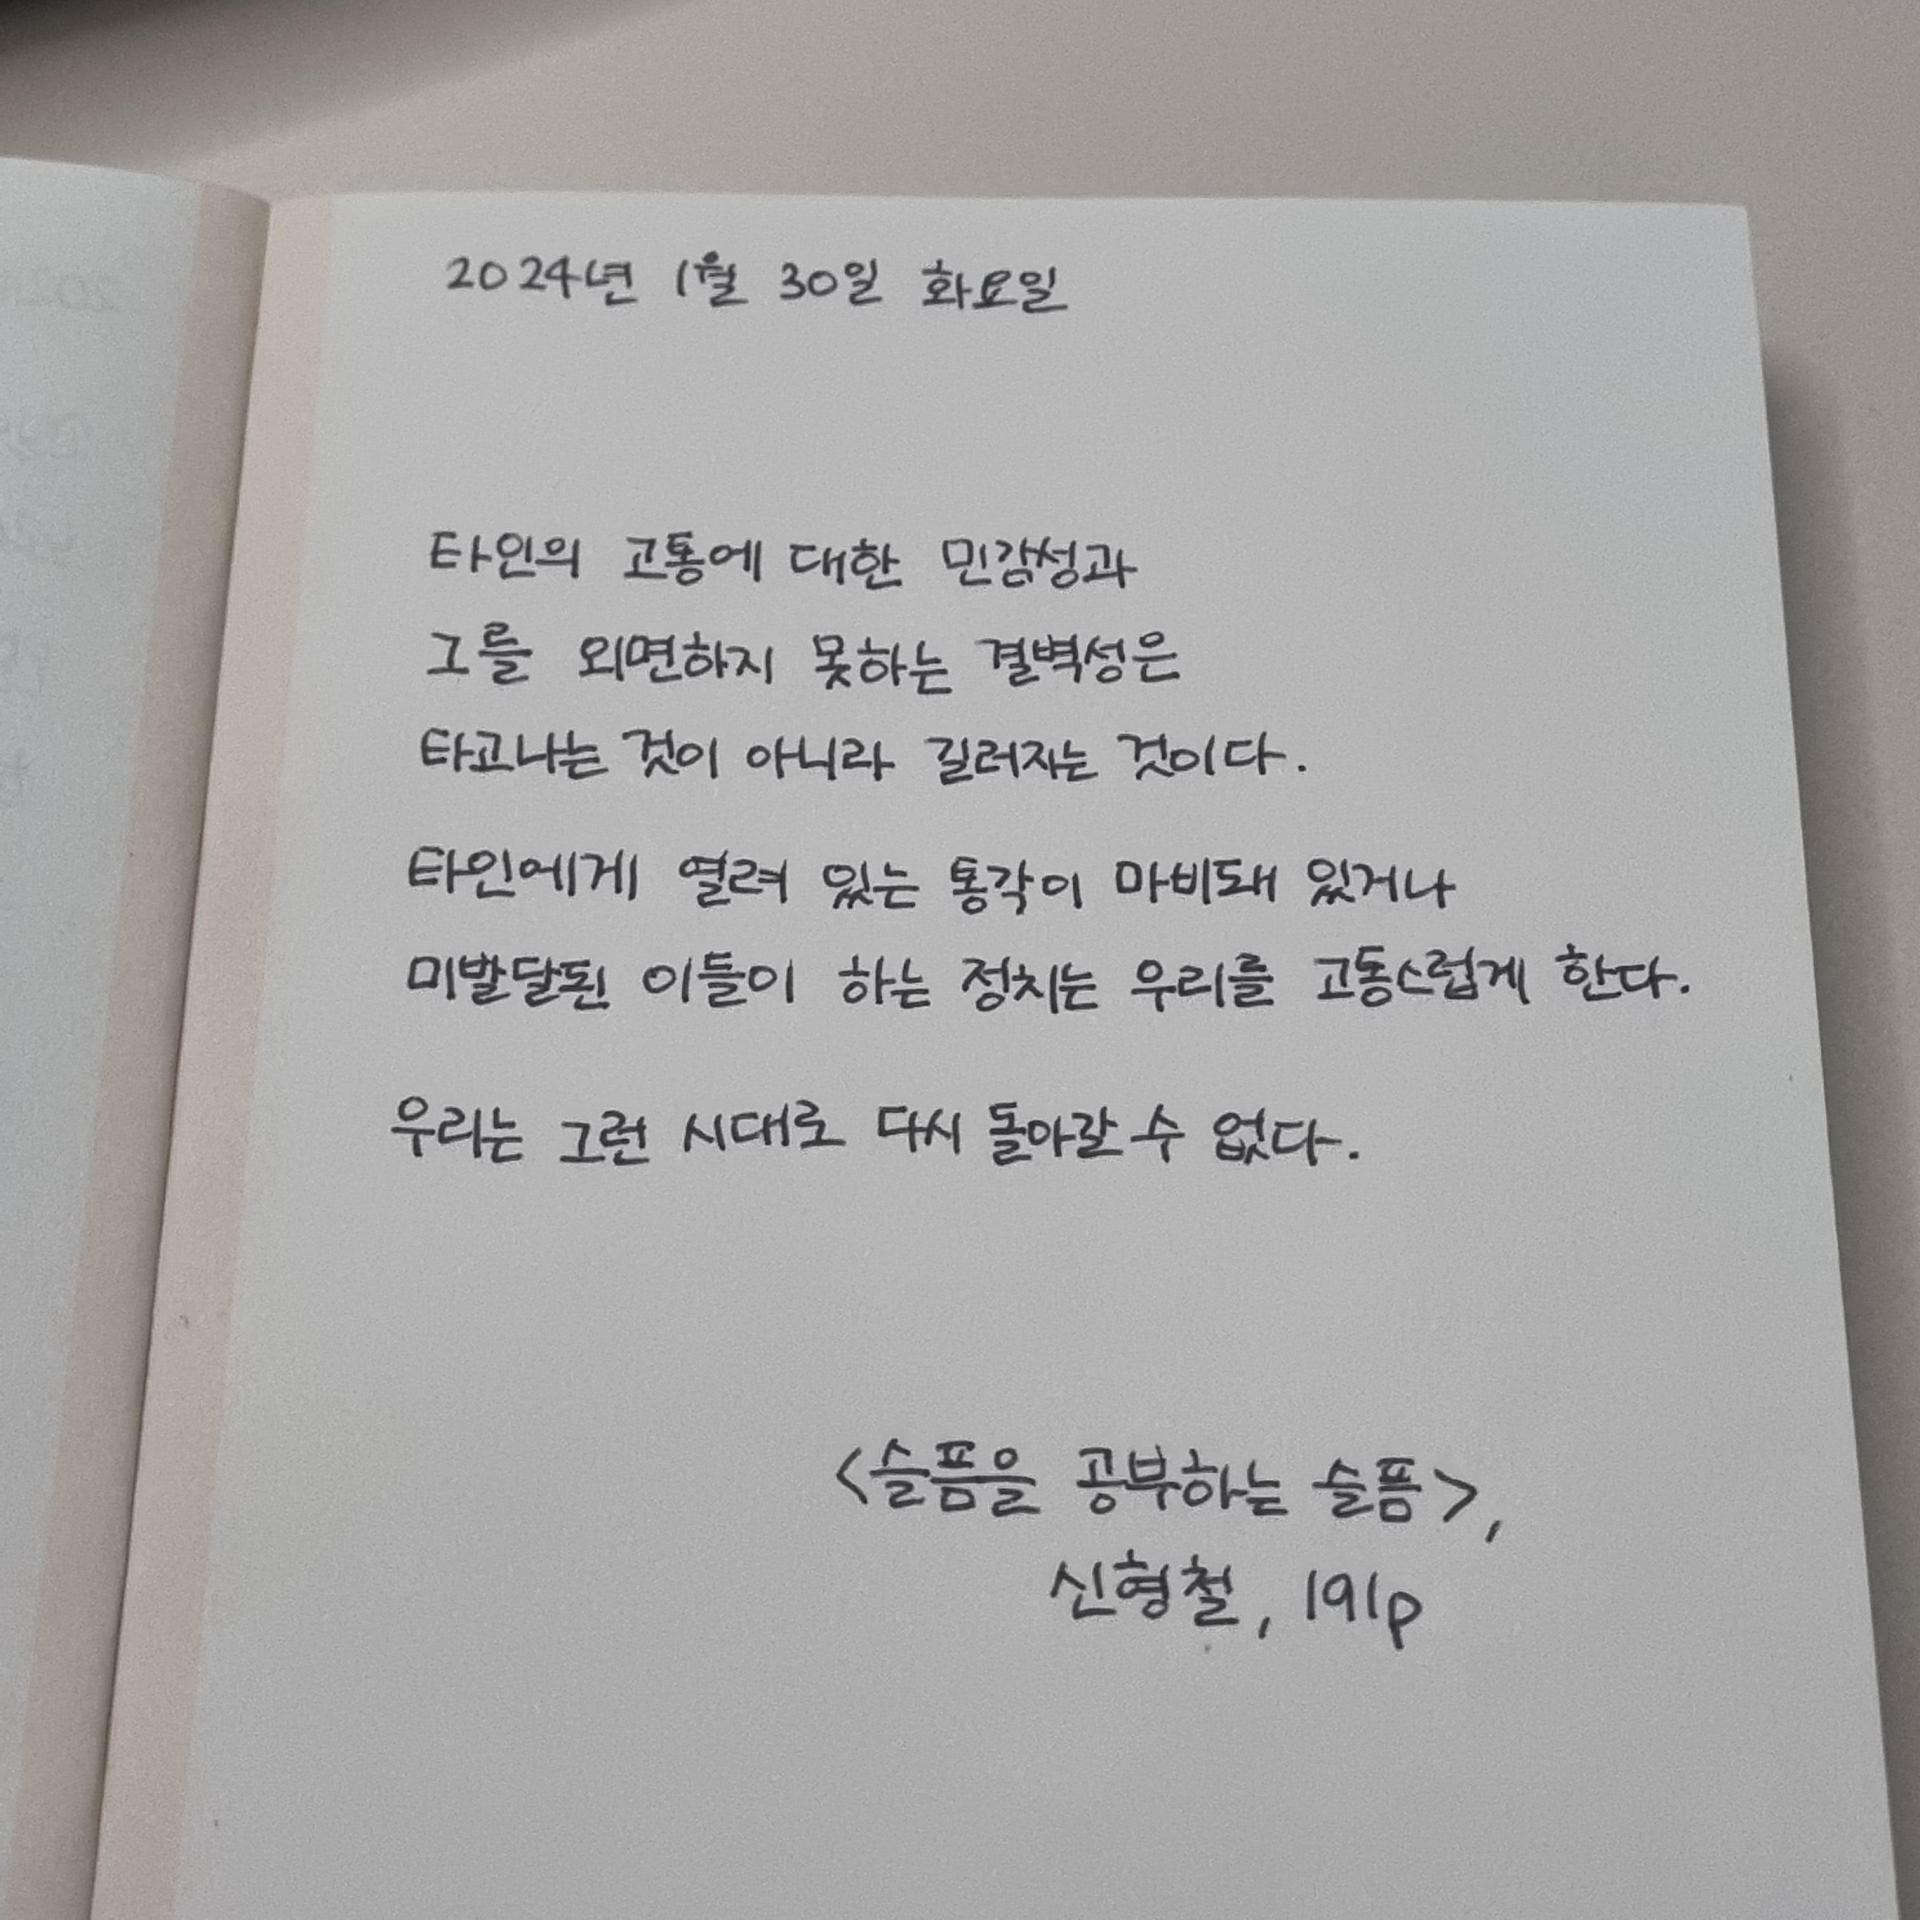 2024년 1월 30일 화요일
타인의 고통에 대한 민감성과
그를 외면하지 못하는 결벽성은
타고나는 것이 아니라 길러자는 것이다.
타인에게 열려 있는 통각이 마비돼 있거나
미발달된 이들이 하는 정치는 우리를 고통스럽게 한다.
우리는 그런 시대로 다시 돌아갈 수 없다.
<슬픔을 공부하는 슬픔>,
신형철, 191p